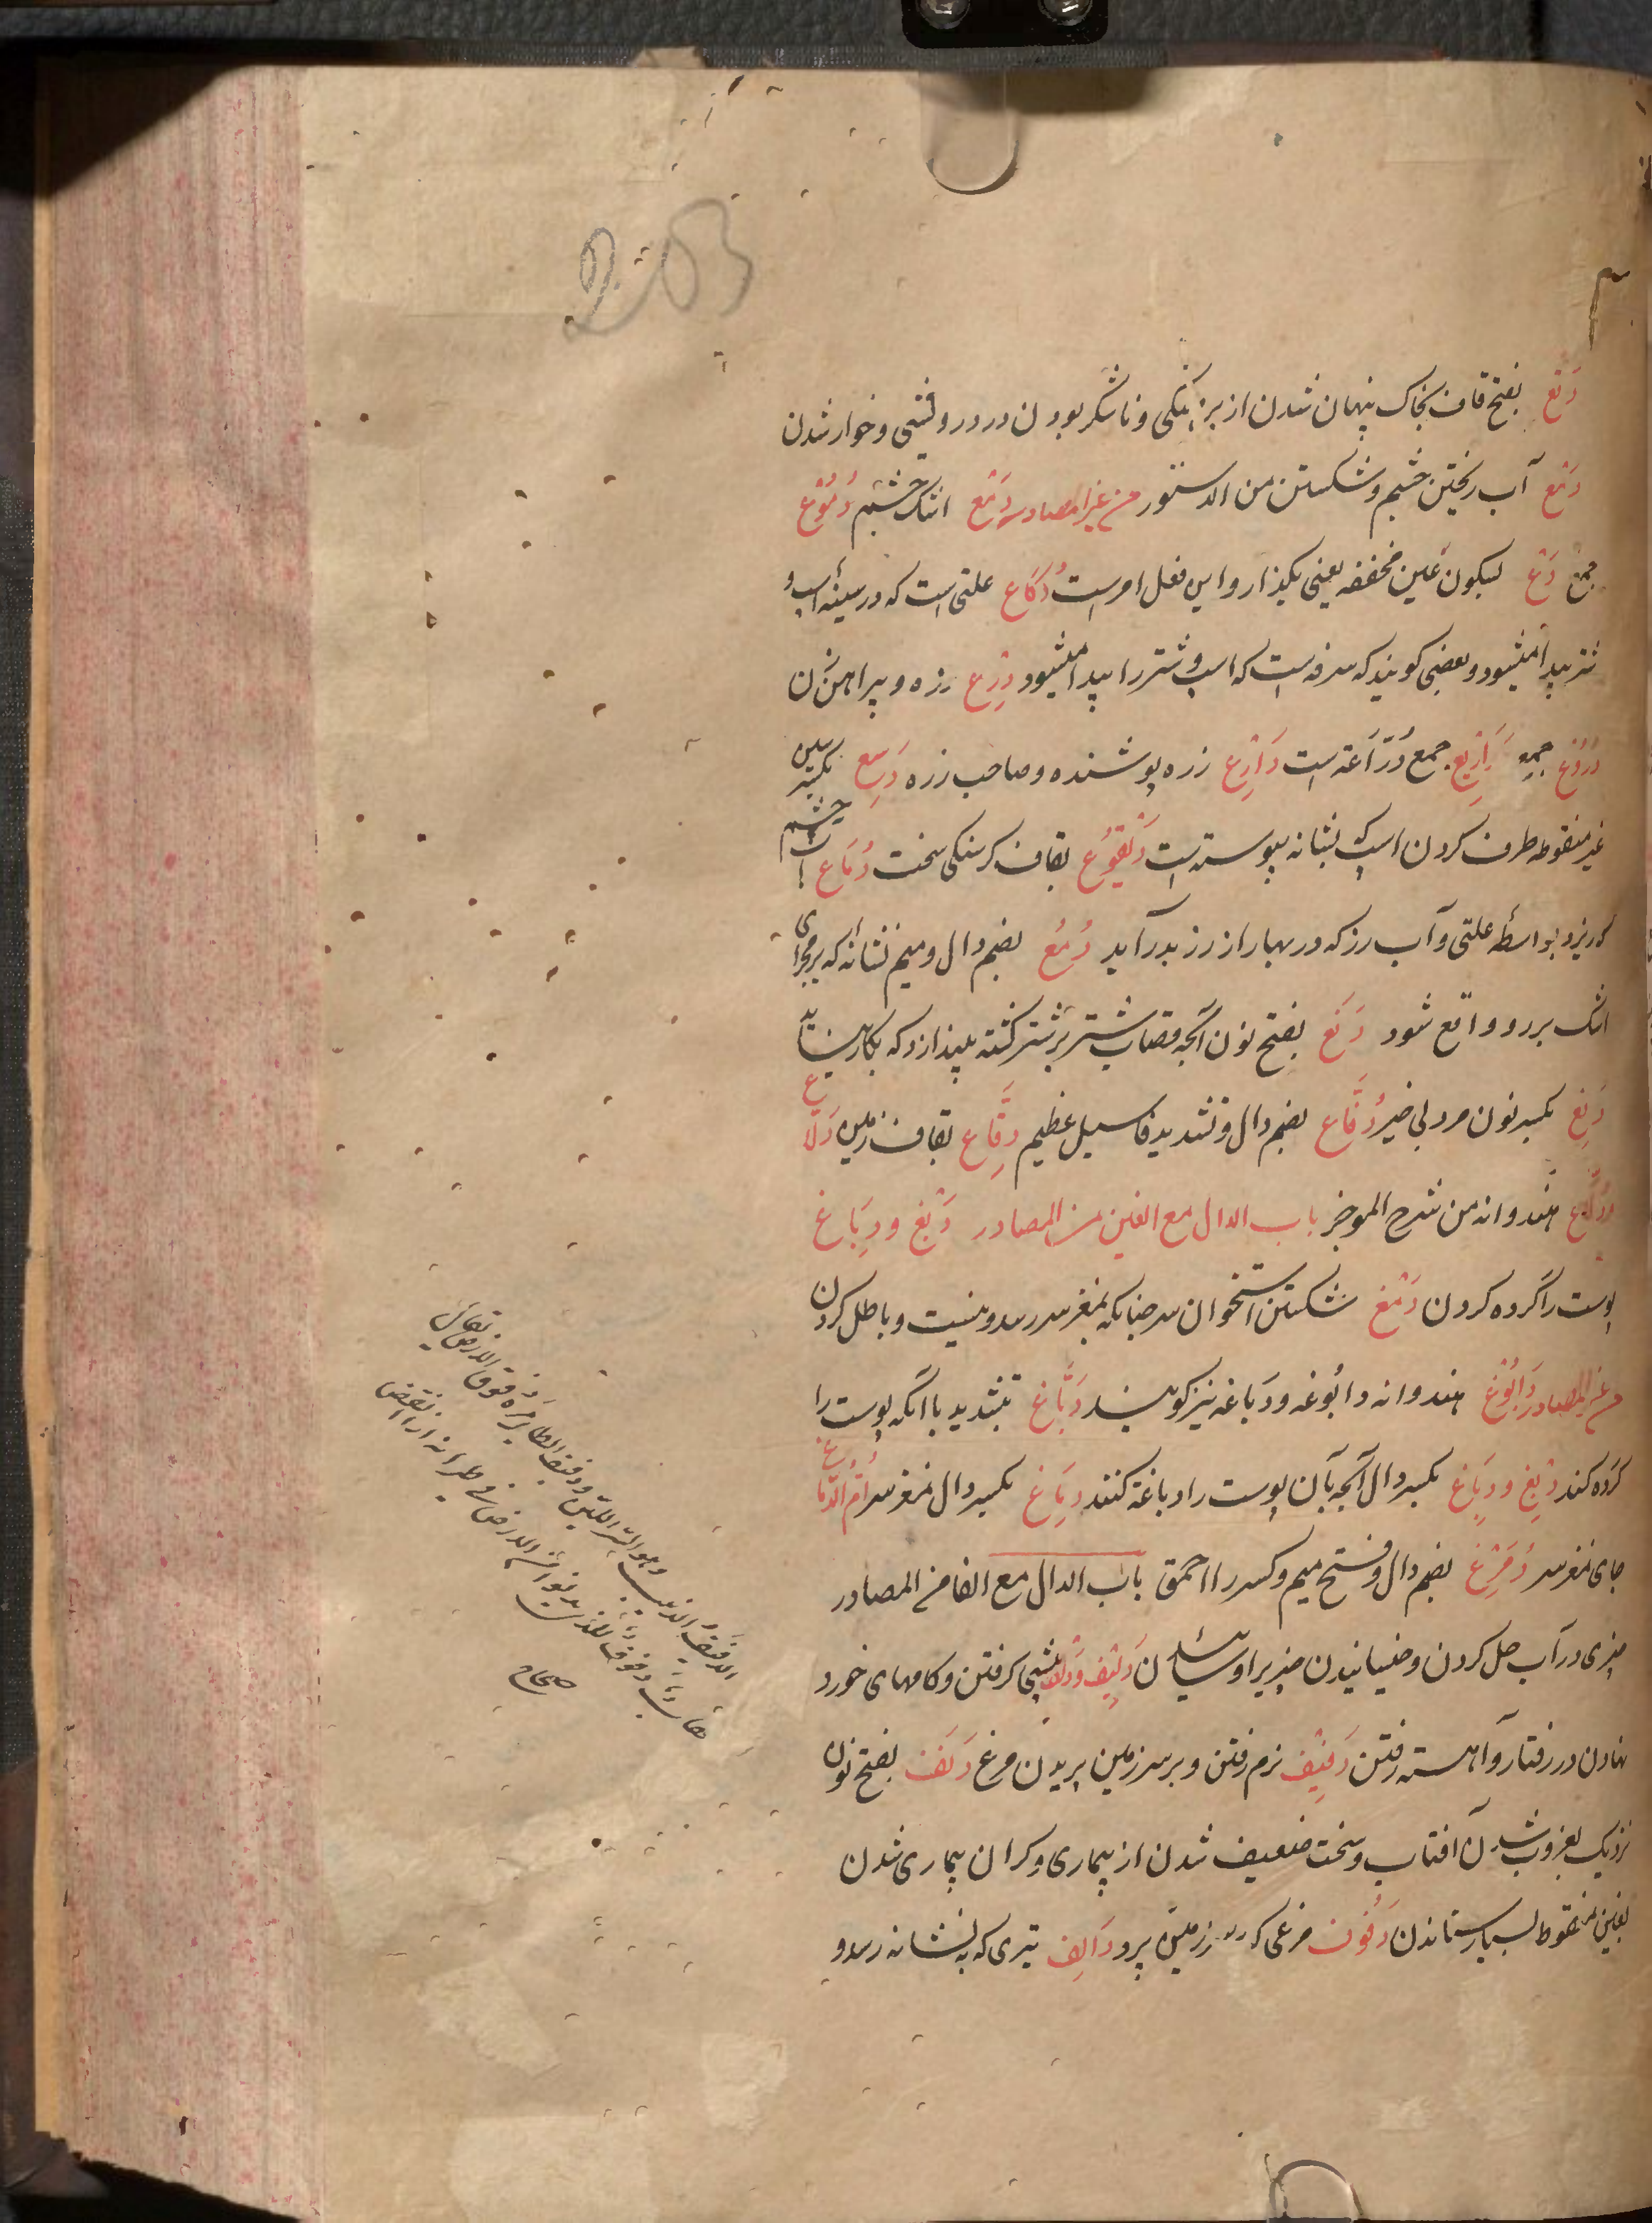 203
دَقَع بفتح قاف بخاک پنهان شدن از برهنکی و ناشکر بودن در درویشی و خوار شدن
دَمْع آب ریختن چشم و شکستن من الدستور من غیر المصادر دَمْع اشک چشم دُمُوْع
جمع دَعْ بسکون عین مخففه یعنی بکذار و این فعل امرست دُکَاع علتی است که در سینهٔ اسب و
شتر پیدا میشود و بعضی کویند که سرفه است که اسب و شتر را پیدا میشود دِرْع زره و پیراهن زن
دُرُوْع جمع دَرَارِیْع جمع دُرّاعَة است دَارِع زره پوشنده و صاحب زره دَسِیع بکسر سین
غیر منقوطه طرف کردن اسپ که بشانه پیوسته است دَیْقُوْع بقاف کرسنکی سخت دُمَاع آب چشم
که ریزد بواسطهٔ علتی و آب رز که در بهار از رز بدر آید دُمُع بضم دال و میم نشانه که بر مجرای
اشک بر رو واقع شود دَنَع بفتح نون آنچه قصاب شتر بر شتر کشته بیندازد که بکار نیاید
دَنِع بکسر نون مرد بی خیر دُفَّاع بضم دال و تشدید فا سیل عظیم دِقَاع بقاف زمین دَلَّاع
و دُلَّاع هندوانه من شرح الموجز باب الدال مع الغین من المصادر دَبْغ و دِبَاغ
پوست را کرده کردن دَمْغ شکستن استخوان سر چنانکه بمغز سر رسد و نیست و باطل کردن
من غیر المصادر دَابُوْغ هندوانه دابُوغه و دَباغه نیز کویند دَبَّاغ بتشدید با آنکه پوست را
کرده کند دِبْغ و دِبَاغ بکسر دال آنچه بآن پوست را دباغة کنند دِمَاغ بکسر دال مغز سر اُمُّ الدِّمَاغ
جای مغز سر دُمَرِغ بضم دال و فتح میم و کسر را احمق باب الدال مع الفا من المصادر
چیزی در آب حل کردن و خیسانیدن چیزی دَلِیْف و دَلْف پیش کرفتن و کامهای خورد
نهادن در رفتار و آهسته رفتن دَفِیْف نرم رفتن و بر سر زمین پریدن مرغ دَنَف بفتح نون
نزدیک بغروب شدن آفتاب و سخت ضعیف شدن از بیماری و کران بیماری شدن
بغین منقوط بسیار ستاندن دَفُوْف مرغی که بر زمین پرد دَالِف تیری که به نشانه رسد و
الدَفیفُ الدبیب وهو السیر اللیّن ودفیف الطایر مَرُّه فوق الارض یقال
عقاب دفوف للذی یدنو من الارض فی طیرانه اذا انقض
صحاح